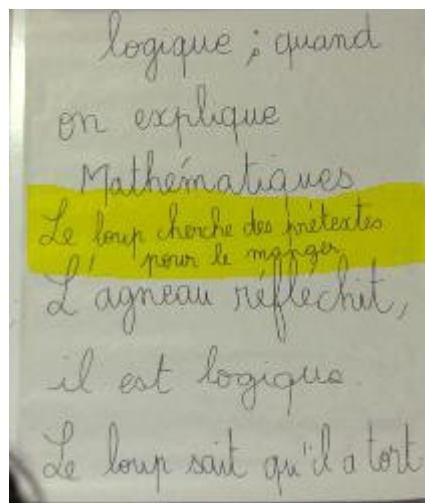 logique ; quand
on explique
Mathématiques
Le loup cherche des prétextes
pour le manger
L'agneau réfléchit,
il est logique.
Le loup sait qu'il a tort